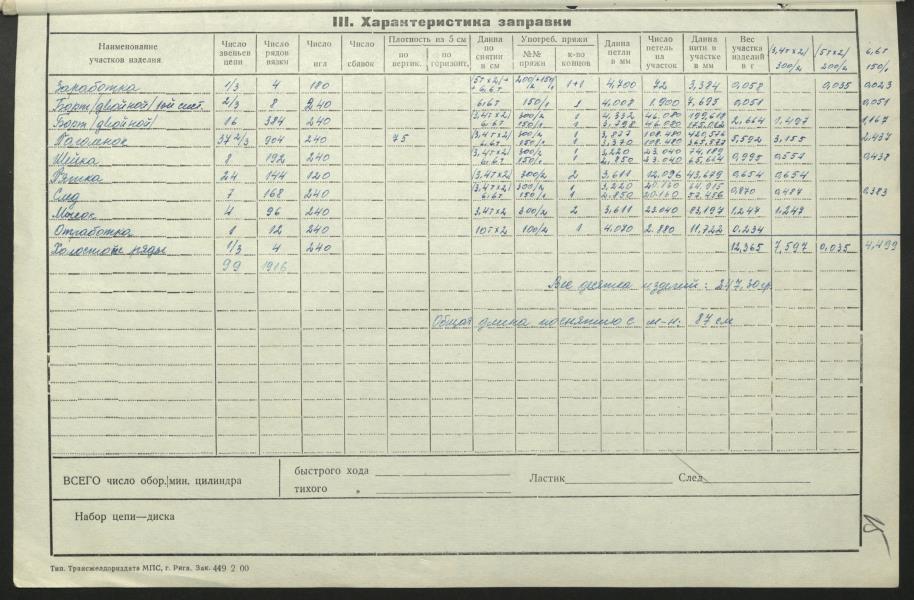 III. Характеристика заправки
Наименование участков изделия | Число звеньев цепи | Число рядов вязки | Число игл | Число сбавок | Плотность из 5 см по вертик. | по горизонт. | Длина по снятии в см | Употреб. пряжи №№ пряжи | к-во концов | Длина петли в мм | Число петель на участок | Длина нити в участке в мм | Вес участка изделий в г | /3,4тх2/ 300/2 | /5тх2/ 200/2 | 6,6т 150/1
Заработка 1/3 4 180 /5тх2/+ +6,6т 200/2+150/1 1+1 4,700 72 3,384 0,058 0,035 0,023
Борт /двойной/ 2/3 8 240 6,6т 150/1 1 4,008 1.900 7,695 0,051 0,051
Борт /двойной/ 16 384 240 /3,4тх2/ 6,6т 300/2 150/1 1 1 4,332 3,798 46.080 46.080 2,664 1,497 1,167
Паголенок 37 2/3 904 240 75 /3,4тх2/ 6,6т 300/2 150/1 1 1 3,877 3,370 108.480 108.480 5,592 3,155 2,437
Шейка 8 192 240 /3,4тх2/ 6,6т 300/2 150/1 1 1 3,220 2,850 23.040 23.040 74,189 65,664 0,995 0,557 0,438
Пятка 24 144 120 /3,4тх2/ 300/2 2 3,611 12,096 43,679 0,654 0,654
След 7 168 240 /3,4тх2/ 6,6т 300/2 150/1 1 1 3,220 2,850 20.160 20.160 64,915 57,456 0,870 0,487 0,383
Мысок 4 96 240 3,4тх2 300/2 2 3,611 23.040 83,197 1,247 1,247
Отработка 1 12 240 10тх2 100/2 1 4,070 2.880 11,722 0,234
Холостые ряды 1/3 4 240 12,365 7,597 0,035 4,499
99 1916
Вес десятка изделий: 247,30 гр.
Общая длина по снятию с м-н. 87 см
ВСЕГО число обор./мин. цилиндра
быстрого хода
тихого „
Ластик
След
Набор цепи—диска
Тип. Трансжелдориздата МПС, г. Рига. Зак. 449 2 00